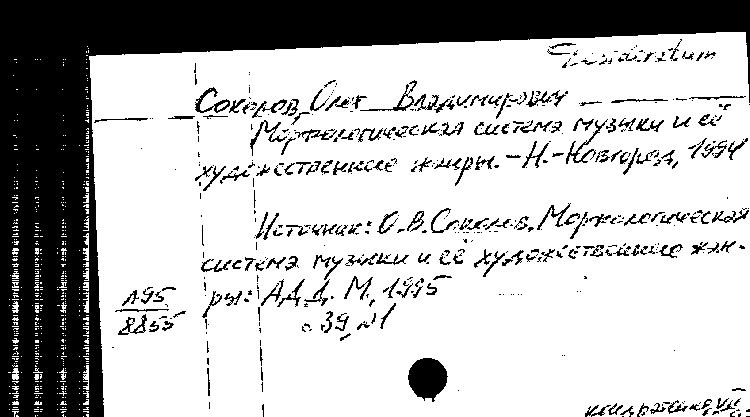 Desideratum
Соколов, Олег Владимирович
Морфологическая система музыки и её
художественные жанры. – Н.-Новгород, 1994
Источник: О.В. Соколов. Морфологическая
система музыки и её художественные жан-
ры: АДД. М., 1995
Л95
8855
с. 39, №1